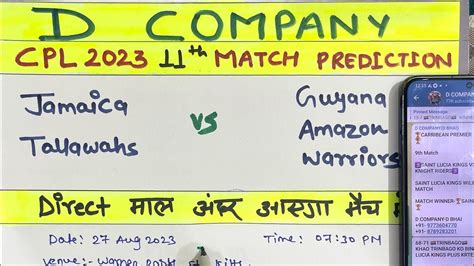 D COMPANY
CPL 2023 11th MATCH PREDICTION
Jamaica
Tallawahs
VS
Guyana
Amazon
Warriors
Direct माल अंदर आएगा मैच
Date: 27 Aug 2023
Time: 07:30 PM
Venue:- Warner Park
D COMPANY
Pinned Message
D COMPANY D BHAI
CARRIBEAN PREMIER
9th Match
SAINT LUCIA KINGS VS
KNIGHT RIDERS
SAINT LUCIA KINGS
MATCH WINNER-
CONTACT-
COMPANY-D BHAI
+91- 9773604770
+91- 8769283201
68-71 TRINBAGO
KHAO TRINBAGO KO BIN
LUCIA KINGS PLUS